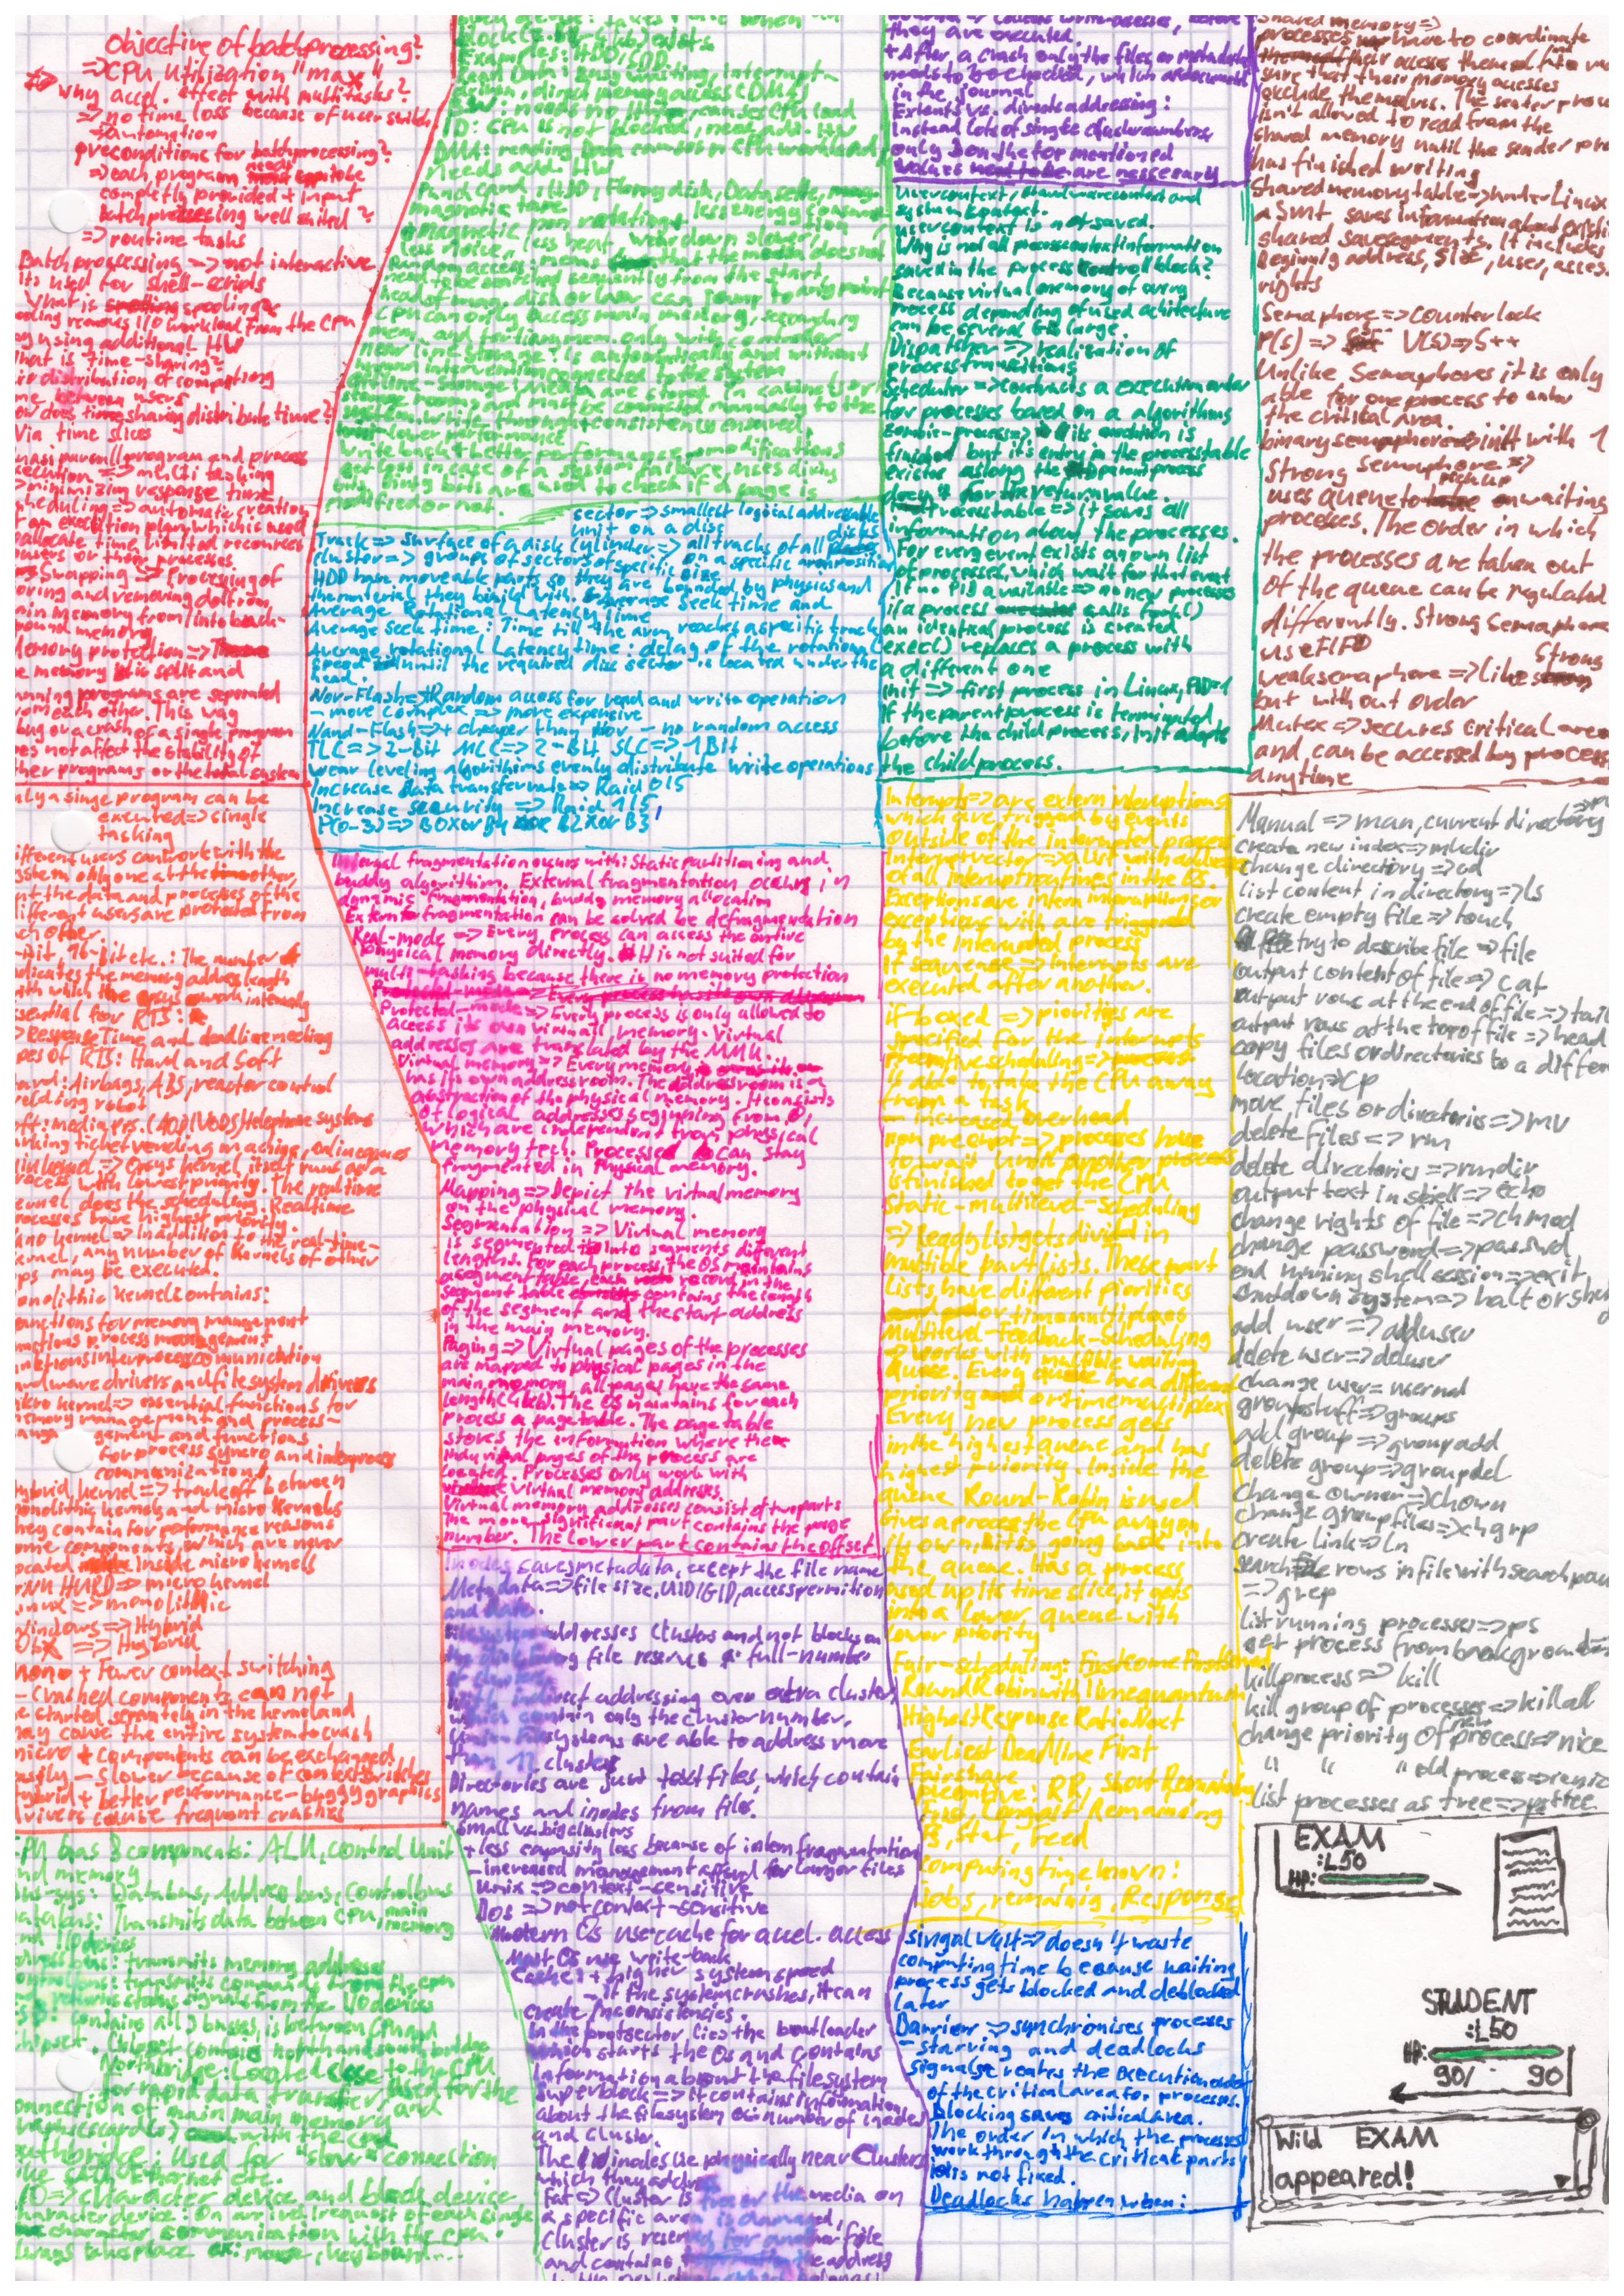 Objective of batchprocessing?
=>CPU utilization "max"
why accel. effect with multitasks?
=> no time loss because of user switch
+automation
preconditions for batchprocessing?
=>each program needs to be
completly provided + input
batchprocessing well suited?
=> routine tasks
Batch processing => not interactive
its used for shell-scripts
what is spooling?
removes I/O workload from the CPU
using additional HW
what is time-sharing?
distribution of computing
between users
does time sharing distribute time?
Via time slices
program and process
=> multi tasking
minimizing response time
=> automatic creation
of an execution plan, which is used
allocate time limited recources
users or them processes.
Swapping => Processing of
and removing data from
main memory from/into back-
ground memory
Memory protection =>
memory is split and
running programs are separated
from each other. This way
bug or a crash of a single program
does not affect the stability of
other programs or the total system
only a singe program can be
executed => single
tasking
different users can work with the
system only one at the other,
but the data and processes of the
different users are protected from
each other
16-bit etc.: The number
indicates the memory address length
with which the opsys work internally
essential for RTS:
Response Time and deadline meeting
types of RTS: Hard and Soft
Hard: Airbags, ABS, reactor control
welding robot
Telephone systems
parking ticket vending machine, online
=> Opsys kernel itself runs as a
process with lowest priority. The real time
kernel does the scheduling. Realtime
processes have highest priority.
nano kernel => In addition to the real-time-
kernel, any number of kernels of other
may be executed.
monolithic kernel contains:
functions for memory management
functions process management
functions interprocess communication
hardware drivers and file system drivers
micro kernel => essential functions for
memory management and process-
management and functions
for process syncro and interprocess
communication
hybrid kernel => tradeoff between
monolithic kernels and micro kernels
they contain for performance reasons
some components, which are never
located inside micro kernels
GNU HURD => micro kernel
Linux => monolithic
Windows => Hybrid
=> Hybrid
mono + fewer context switching
- Crashed components can not
be started separately in the kernel and
may cause the entire system to crash
micro + components can be exchanged
easily - Slower because of context switches
hybrid + better performance - buggy graphics
drivers cause frequent crashes
CPU has 3 components: ALU, Control Unit
and memory
Bus-sys: Databus, Address bus, Controlbus
databus: Transmits data between CPU, main memory
and I/O devices
transmits memory addresses
transmits commands from the cpu
status signals from the I/O devices
contains all 3 busses, is between CPU and
chipset. Chipset contains north and south bridge
Northbridge: Located close to the CPU
for rapid data transfer, used for the
connection of main main memory and
graphicscard(s) with the cpu
southbridge: Used for "slow" connection
like SATA, Ethernet etc.
I/O => character device and block device
character device: On arrival/request of each single
character, communication with the cpu
always takes place ex: mouse, keyboard...
exists
Examples: HDD, SDD
Read Data: Busy waiting, interrupt-
driven, direct memory access (DMA)
BW: needs no HW - causes CPU load
ID: CPU is not blocked, need add. HW
DMA: reading Data causes no CPU workload
needs add. HW
Punch card, HDD, Floppy disk, Datasette, mag.
magnetic tape
nonmagnetic, non rotating + less energy consume
less noise, less heat, wear down slower
Random access means that the medium does not
need to be searched sequently from the start
head of mag. disk or laser can jump to any point
CPU can only access main memory, secondary
mem. and tertiary mem. only with controller
near line storage: Is automatically and without
human intervention connected to the system
offline-Storage: Media are stored in cabinets or
storage rooms and must be connected manually to the
system. write-through + consistency ensured
- lower performance
write back + better performance, modifications
get lost in case of a system failure, uses dirty
bits, Dirty bits are used to check if a page is
modified or not.
sector => smallest logical addressable
unit on a disc
Track => Surface of a disk Cylinder => all tracks of all disks
Cluster => groups of sectors of specific size on a specific arm position
HDD have moveable parts so they are bounded by physics and
the material they build with. average seek time and
Average Rotational Latency time
Average seek time: Time till the arm reaches a specific track
Average rotational Latency time: delay of the rotational
speed until the required disc sector is located under the
head.
Nor-Flash => +Random access for read and write operation
- more complex => more expensive
Nand-Flash => + cheaper than Nor - no random access
TLC => 2-Bit MLC => 2-Bit SLC => 1 Bit
wear leveling algorithims evenly distribute write operations
Increase data transferrate => Raid 0/5
Increase security => Raid 1/5
P(0-3) => B0 xor B1 xor B2 xor B3
Internal fragmentation occurs with: Static partitioning and
buddy algorithim, External fragmentation occurs in
dynamic fragmentation, buddy memory allocation
Extern fragmentation can be solved be defragmentation
Real-mode => Every process can access the entire
physical memory directly. It is not suited for
multi-tasking because there is no memory protection
Protected-mode => Every process is only allowed to
access its own virtuall memory. Virtual
addresses are translated by the MMU.
Virtual memory => Every memory
has its own address room. The address room is a
abstraction of the physical memory. It consists
of logical addresses beginning from 0,
which are independent from physical
memory tech. Processes can stay
fragmented in Physical memory.
Mapping => Depict the virtual memory
on the physical memory.
Segmentation => Virtual memory
is segmented into segments different
lengths. For each process, the OS maintains
a segment table, each record in the
segment table contains the length
of the segment and the start address
in the main memory.
Paging => Virtual pages of the processes
are mapped to physical pages in the
main memory, all pages have the same
length (4kb). The OS maintains for each
process a page table. The page table
stores the information where the
individual pages of the process are
located. Processes only work with
virtual memory addresses.
Virtual memory addresses consist of two parts
The more significant part contains the page
number. The lower part contains the offset
Inodes saves metadata, except the file name
Metadata => file size, UID/GID, accesspermition
and date.
Filesystem addresses Clusters and not blocks on
the disk. Every file reserves a full-number
of clusters
With indirect addressing over extra cluster,
which contain only the cluster number,
Unix filesystems are able to address more
than 12 clusters
Directories are just text files, which contain
names and inodes from files.
Small vs. big clusters
+ less capasity loss because of intern fragmentation
- increased management effort for larger files
Unix => context-sensitive
Dos => not context-sensitive
Modern OS use cache for accel. access
Most OS use write-back
Cache: + higher system speed
- if the system crashes, it can
create inconsistencies.
In the bootsector, lies the bootloader
which starts the Os and contains
information about the filesystem
superblock => it contains information
about the filesystem ex: number of inodes
and cluster.
The inodes lie physically near Clusters
which they address
Fat => Cluster is free or the media on
a specific area is damaged,
cluster is reserved for another file
and contains the address
they are executed
+ After a crash only the files or metadata
needs to be checked, which are document
in the journal
Extents vs. direct addressing:
Instead lots of single clusternumbers
only 3 on the for mentioned
values need to be are nessesary
Usercontext, Hardwarecontext and
system context.
usercontext is not saved.
Why is not all processcontext information
saved in the process controll block?
Because virtual memory of every
process depending of used achitecture
can be several GB large.
Dispatcher => realization of
process transitions
Scheduler => contracts a execution order
for processes based on a algorithms
Zombie-process => its execution is
finished but it's entry in the processtable
existce as long the parent process
doesn't for the return value.
Processtable => it saves all
information about the processes.
For every event exists an own list
of processes, which wait for that event
if no PID available => no new processes
if a process calls fork()
an identical process is created
exec() replaces a process with
a different one
init => first process in Linux, PID=1
if the parent process is terminated
before the child process, init adopts
the child process.
Interrupts => are extern interruptions
which are triggered by events
outside of the interrupted process
Interruptvector => a list with address
of all interruptroutines in the OS.
Exceptions are intern interruptions or
exceptions with are triggered
by the interrupted process
if sequense => Interrupts are
executed after another.
if boxed => piorities are
specified for the interrupts
preemtive scheduling =>
is able to take the CPU away
from a task
- increased overhead
non preempt => processes have
to wait until another process
is finished to get the CPU
Static-multilevel-scheduling
=> Ready list gets divided in
multible part lists. These part
Lists have different piorities
or timemultiplexes
Multilevel-feedback-Scheduling
=> works with multible waiting
Queue. Every queue has a different
priority or timemultiplex
Every new process gets
in the highest queue and has
highest priority. Inside the
queue Round-Robin is used
Gives a process the CPU away on
its own, it is going back into
the queue. Has a process
used up its time slice, it gets
into a lower queue with
lower priority
Fair-scheduling: First come First served
Round Robin with timequantum
Highest Response Ratio Next
Earliest Deadline First
Fairshare
preemtive: RR, Short Remaining
First, Longest Remaining
FS, Stat, Feed
Computing time known:
Jobs, remainig, Response
singal wait => doesn't waste
computing time because waiting
process gets blocked and deblocked
later
Barrier => synchronises processes
- starving and deadlocks
signals creates the execution order
of the critical area for processes.
blocking saves critical area.
The order in which the processes
work through the critical parts
is not fixed.
Deadlocks happen when:
Shared memory =>
processes have to coordinate
their accesses themself
sure that their memory accesses
exclude themselves. The sender process
isn't allowed to read from the
shared memory until the sender process
has finished writing
Shared memory table => under Linux
a SMT saves information about existing
shared savesegments. It includes:
Beginnig address, size, user, access
rights
Semaphore => counter lock
P(s) => V(s) => S++
Unlike Semaphores it is only
able for one process to enter
the critical area.
binary semaphore => init with 1
Strong Semaphore =>
uses queue to pick up waiting
processes. The order in which
the processes are taken out
of the queue can be regulated
differently. Strong Semaphore
use FIFO
weak semaphore => like strong
but without order
Mutex => secures critical area
and can be accessed by process
anytime
Manual => man, current directory
create new index => mkdir
change directory => cd
list content in directory => ls
create empty file => touch
try to describe file => file
output content of file => cat
output rows at the end of file => tail
output rows at the top of file => head
copy files or directories to a different
location => cp
move files or directories => mv
delete files => rm
delete directories => rmdir
output text in shell => echo
change rights of file => chmod
change password => passwd
end running shell session => exit
shutdown system => halt or
add user => adduser
delete user => deluser
change user = usermod
groupstuff => groups
add group => groupadd
delete group => groupdel
change owner => chown
change groupfiles => chgrp
create link => ln
search rows in file with search
=> grep
list running processes => ps
get process from background
kill process => kill
kill group of processes => killall
change priority of new process => nice
" " " old process => renice
list processes as tree => pstree
EXAM
:L50
HP:
STUDENT
:L50
HP:
90/ 90
Wild EXAM
appeared!